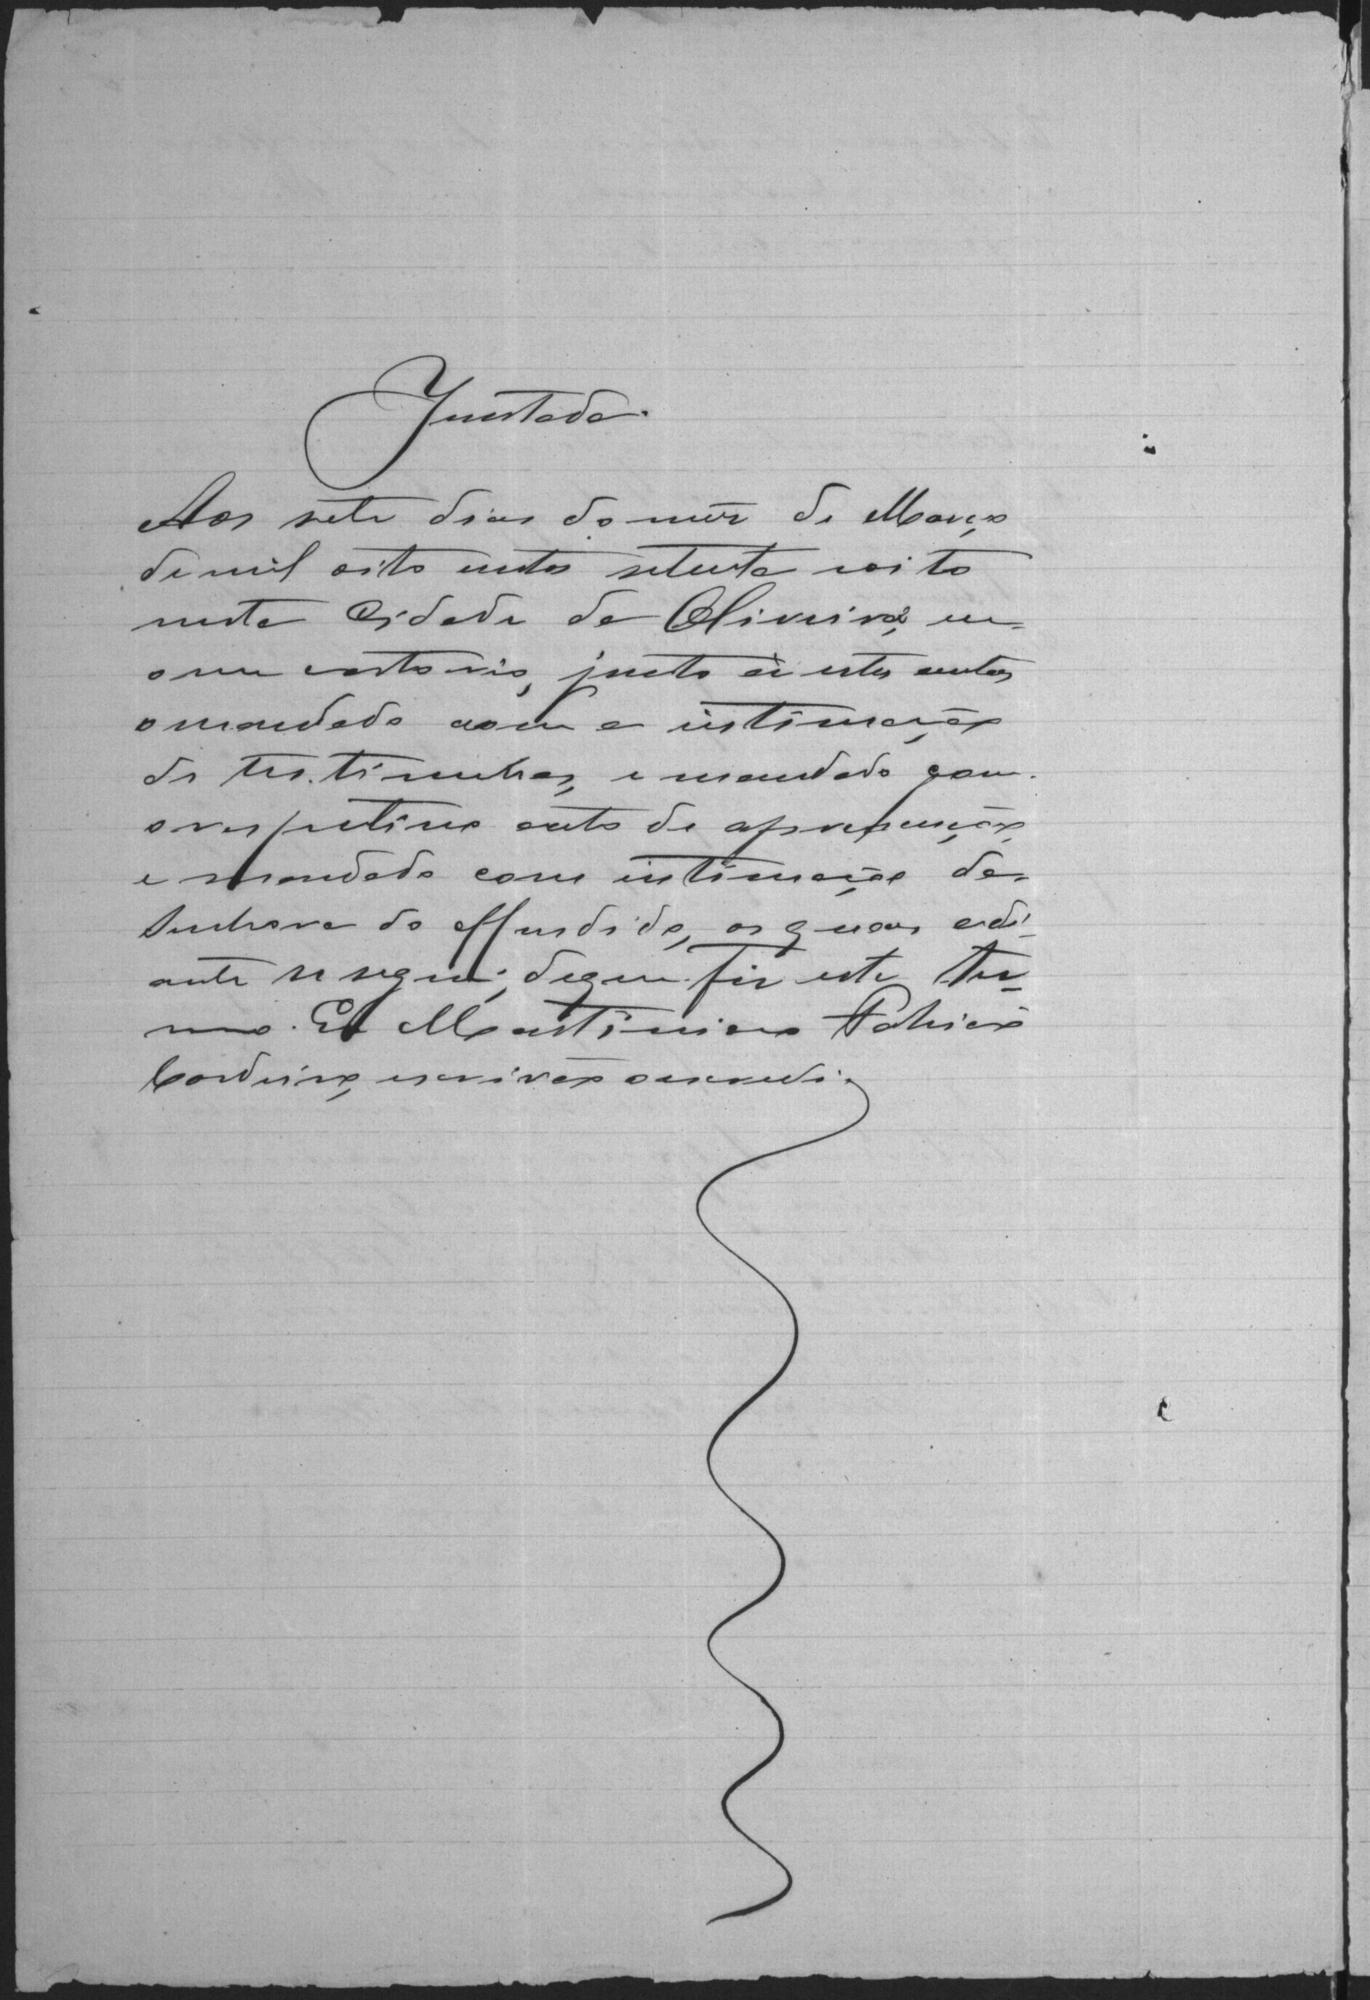 Juntada.
Aos sete dias do mêz de Março
de mil oito centos setenta e oito
nesta Cidade de Oliveira, em
o meu cartorio, junto á estes autos
o mandado com a intimação
de testimunhas, e mandado com
o respectivo auto de apresenção,
e mandado com intimação da
Senhora do offendido, os quaes adi-
ante se segue; do que fiz este ter-
mo. Eu Martiniano
Cordeiro, escrivão o escrevi.